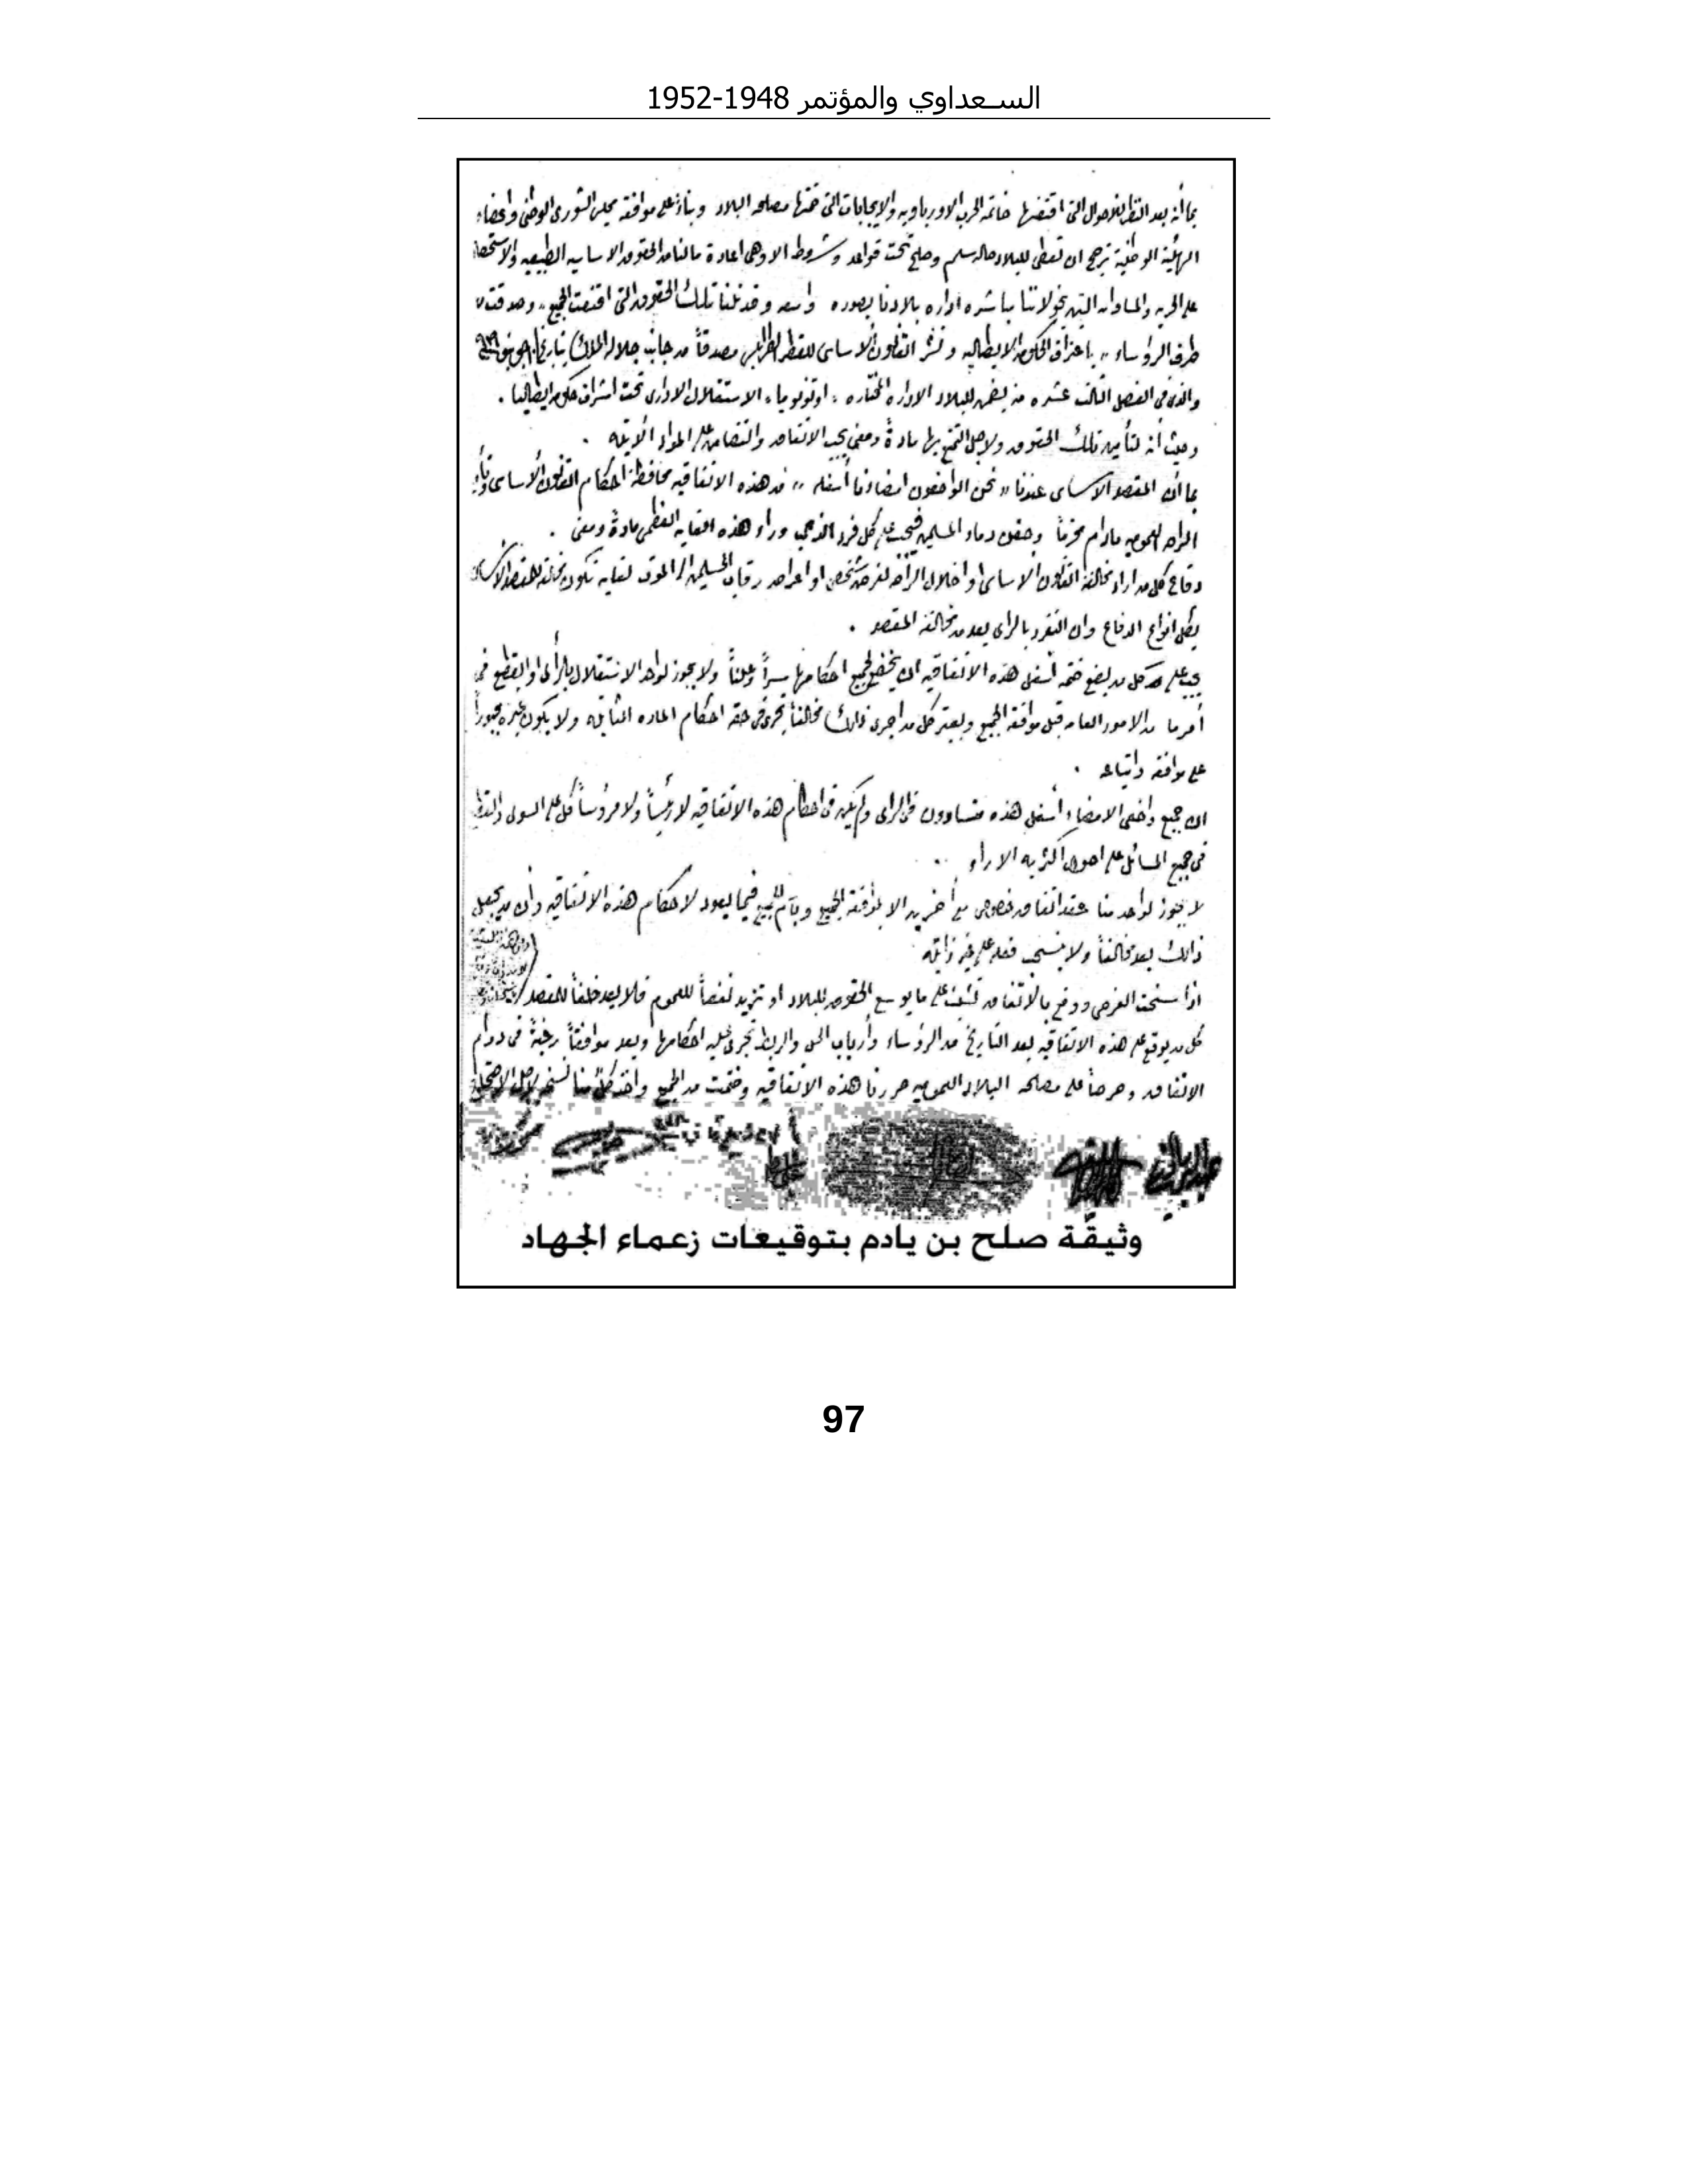 السعداوي والمؤتمر 1948-1952
بما أنه بعد النظر للاحوال التى اقتضتها خاتمة الحرب الاورباويه والايجابات التى حتمتها مصلحه البلاد وبناءً على موافقه مجلس الشورى الوطنى واعضاء
الهيئة الوطنية ترجح ان تعطى للبلاد حاله سلم وصلح تحت قواعد وشروط الا وهى اعادة مالنا من الحقوق الاساسيه الطبيعيه والاستحصال
على الحريه والمساواه التين يخولاننا مباشره اداره بلادنا بصوره واسعه وقد نلنا تلك الحقوق التى اقنعت الجميع وصدقت
طرف الرؤساء باعتراف الحكومه الايطاليه ونشر القانون الاساسى للقطر الطرابلسى مصدقاً من جانب جلاله الملك بتاريخ
والذى فى الفصل الثالث عشره منه يضمن للبلاد الاداره المختاره اوتونوميا الاستقلال الادارى تحت اشراف حكومه ايطاليا .
وحيث أنه لتأمين تلك الحقوق ولاجل التمتع بها مادةً ومعنى يجب الاتفاق والتضامن على المواد الآتيه .
بما أن المقصد الاساسى عندنا " نحن الواضعون امضاءنا أسفله " من هذه الاتفاقيه محافظة احكام القانون الأساسى
الراحه العموميه مادام محترماً وحقن دماء المسلمين فيجب على كل فرد وراء هذه الغايه العظمى مادةً ومعنى .
دفاع كل من اراد مخالفة القانون الاساسى او اخلال الراحه لغرض شخصى او اعراض رقاب المسلمين الى الموت لغايه تكون مخالفة للمقصد الاساسى
بكل انواع الدفاع وان التفرد بالراى يعد من مخالفة المقصد .
يجب على كل من يضع ختمه أسفل هذه الاتفاقيه ان يخضع لجميع احكامها سراً وعلناً ولا يجوز لواحد الاستقلال بالرأى او القطع فى
أمر ما من الامور العامه قبل موافقة الجميع ويعتبر كل من اجرى ذلك مخالفاً يجرى فى حقه احكام الماده الثانيه ولا يكون غيره مجبوراً
على موافقته واتباعه .
ان جميع واضعى الامضاء أسفل هذه متساوون فى الراى ولم يكن فى احكام هذه الاتفاقيه لا رئيساً ولا مرؤساً كل على السوى
فى جميع المسائل على اصول اكثريه الاراء
لا يجوز لواحد منا عقد اتفاق خصوصى مع آخرين الا بموافقة الجميع وبأسم الجميع فيما يعود لاحكام هذه الاتفاقيه وأن من يجعل
ذلك يعد مخالفاً ولا ينسحب فعله على غير ذاته
اذا سنحت الفرص ووقع بالاتفاق تشبث على ما يوسع الحقوق للبلاد او تزيد نفعاً للعموم فلا يعد خلفاً للمقصد
كل من يوقع على هذه الاتفاقيه بعد التاريخ من الرؤساء وأرباب الحل والربط تجرى عليه احكامها ويعد موافقاً رغبةً فى دوام
الاتفاق وحرصاً على مصلحه البلاد العموميه حررنا هذه الاتفاقيه وختمت من الجميع واخذ كل منا نسخه لاجل
وثيقة صلح بن يادم بتوقيعات زعماء الجهاد
97